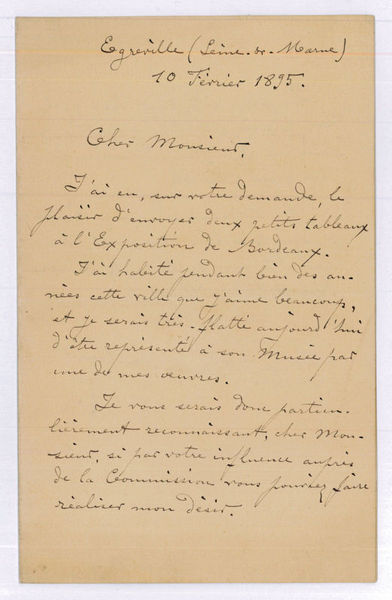 Egreville (Seine-&-Marne)
10 Février 1895.
Cher Monsieur,
J'ai eu, sur votre demande, le
plaisir d'envoyer deux petits tableaux
à l'Exposition de Bordeaux.
J'ai habité pendant bien des an-
nées cette ville que j'aime beaucoup,
et je serais très-flatté aujourd'hui
d'être représenté à son Musée par
une de mes œuvres.
Je vous serais donc particu-
lièrement reconnaissant, cher Mon-
sieur, si par votre influence auprès
de la Commission vous pouviez faire
réaliser mon désir.